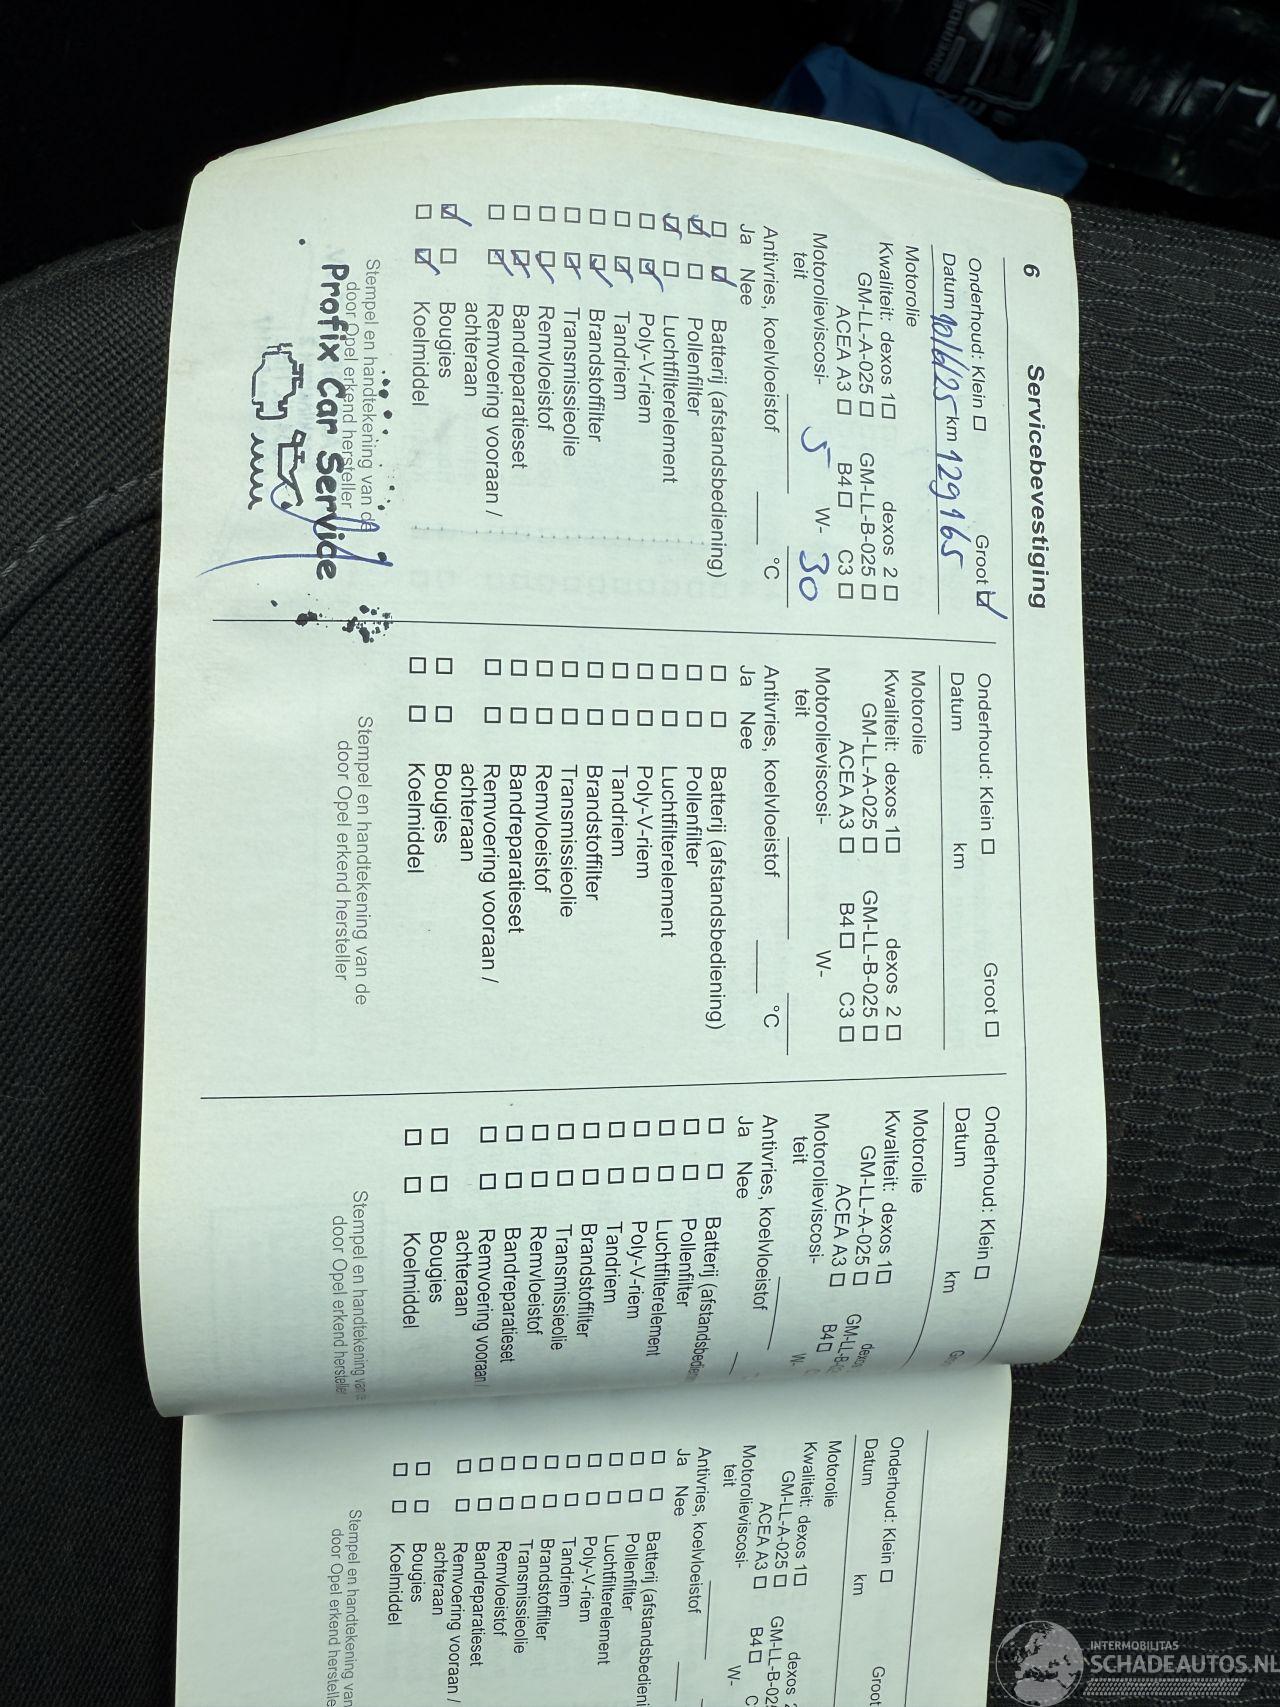 6 Servicebevestiging
Onderhoud: Klein ☐ Groot ☑
Datum 10/6/25 km 129165
Motorolie
Kwaliteit: dexos 1 ☐ dexos 2 ☐
GM-LL-A-025 ☐ GM-LL-B-025 ☐
ACEA A3 ☐ B4 ☐ C3 ☐
Motorolieviscosi- 5 W- 30
teit
Antivries, koelvloeistof °C
Ja Nee
☐ ☑ Batterij (afstandsbediening)
☑ ☐ Pollenfilter
☑ ☐ Luchtfilterelement
☐ ☑ Poly-V-riem
☐ ☑ Tandriem
☐ ☑ Brandstoffilter
☐ ☑ Transmissieolie
☐ ☑ Remvloeistof
☐ ☑ Bandreparatieset
☐ ☑ Remvoering vooraan /
achteraan
☑ ☐ Bougies
☐ ☑ Koelmiddel
Stempel en handtekening van de
door Opel erkend hersteller
Profix Car Service
Onderhoud: Klein ☐ Groot ☐
Datum km
Motorolie
Kwaliteit: dexos 1 ☐ dexos 2 ☐
GM-LL-A-025 ☐ GM-LL-B-025 ☐
ACEA A3 ☐ B4 ☐ C3 ☐
Motorolieviscosi- W-
teit
Antivries, koelvloeistof °C
Ja Nee
☐ ☐ Batterij (afstandsbediening)
☐ ☐ Pollenfilter
☐ ☐ Luchtfilterelement
☐ ☐ Poly-V-riem
☐ ☐ Tandriem
☐ ☐ Brandstoffilter
☐ ☐ Transmissieolie
☐ ☐ Remvloeistof
☐ ☐ Bandreparatieset
☐ ☐ Remvoering vooraan /
achteraan
☐ ☐ Bougies
☐ ☐ Koelmiddel
Stempel en handtekening van de
door Opel erkend hersteller
Onderhoud: Klein ☐
Datum km
Motorolie
Kwaliteit: dexos 1 ☐
GM-LL-A-025 ☐
ACEA A3 ☐ B4 ☐
Motorolieviscosi- W-
teit
Antivries, koelvloeistof
Ja Nee
☐ ☐ Batterij
☐ ☐ Pollenfilter
☐ ☐ Luchtfilterelement
☐ ☐ Poly-V-riem
☐ ☐ Tandriem
☐ ☐ Brandstoffilter
☐ ☐ Transmissieolie
☐ ☐ Remvloeistof
☐ ☐ Bandreparatieset
☐ ☐ Remvoering vooraan
achteraan
☐ ☐ Bougies
☐ ☐ Koelmiddel
Stempel en handtekening
door Opel erkend hersteller
Onderhoud: Klein ☐ Groot
Datum km
Motorolie
Kwaliteit: dexos 1 ☐ dexos
GM-LL-A-025 ☐
ACEA A3 ☐ B4 ☐
Motorolieviscosi- W-
teit
Antivries, koelvloeistof
Ja Nee
☐ ☐ Batterij
☐ ☐ Pollenfilter
☐ ☐ Luchtfilterelement
☐ ☐ Poly-V-riem
☐ ☐ Tandriem
☐ ☐ Brandstoffilter
☐ ☐ Transmissieolie
☐ ☐ Remvloeistof
☐ ☐ Bandreparatieset
☐ ☐ Remvoering vooraan /
achteraan
☐ ☐ Bougies
☐ ☐ Koelmiddel
Stempel en handtekening van
door Opel erkend hersteller
INTERMOBILITAS
SCHADEAUTOS.NL